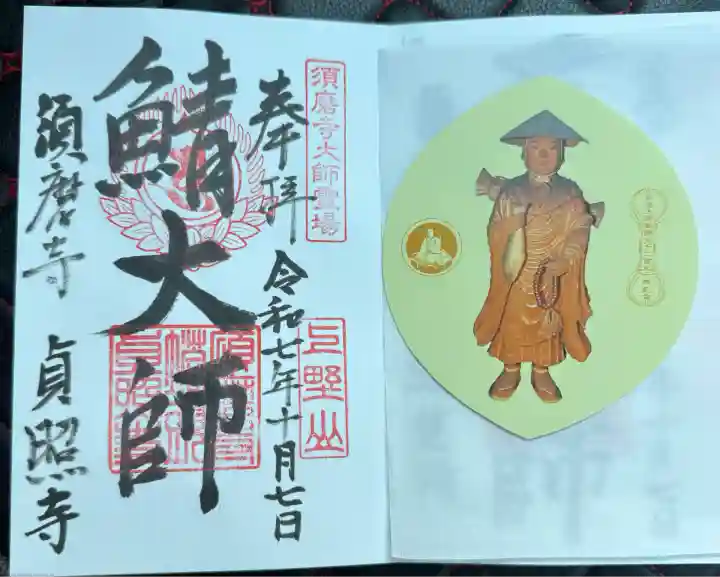 須磨寺大師霊場
奉拝
令和七年十月七日
上野山
鯖大師
須磨寺 貞照寺